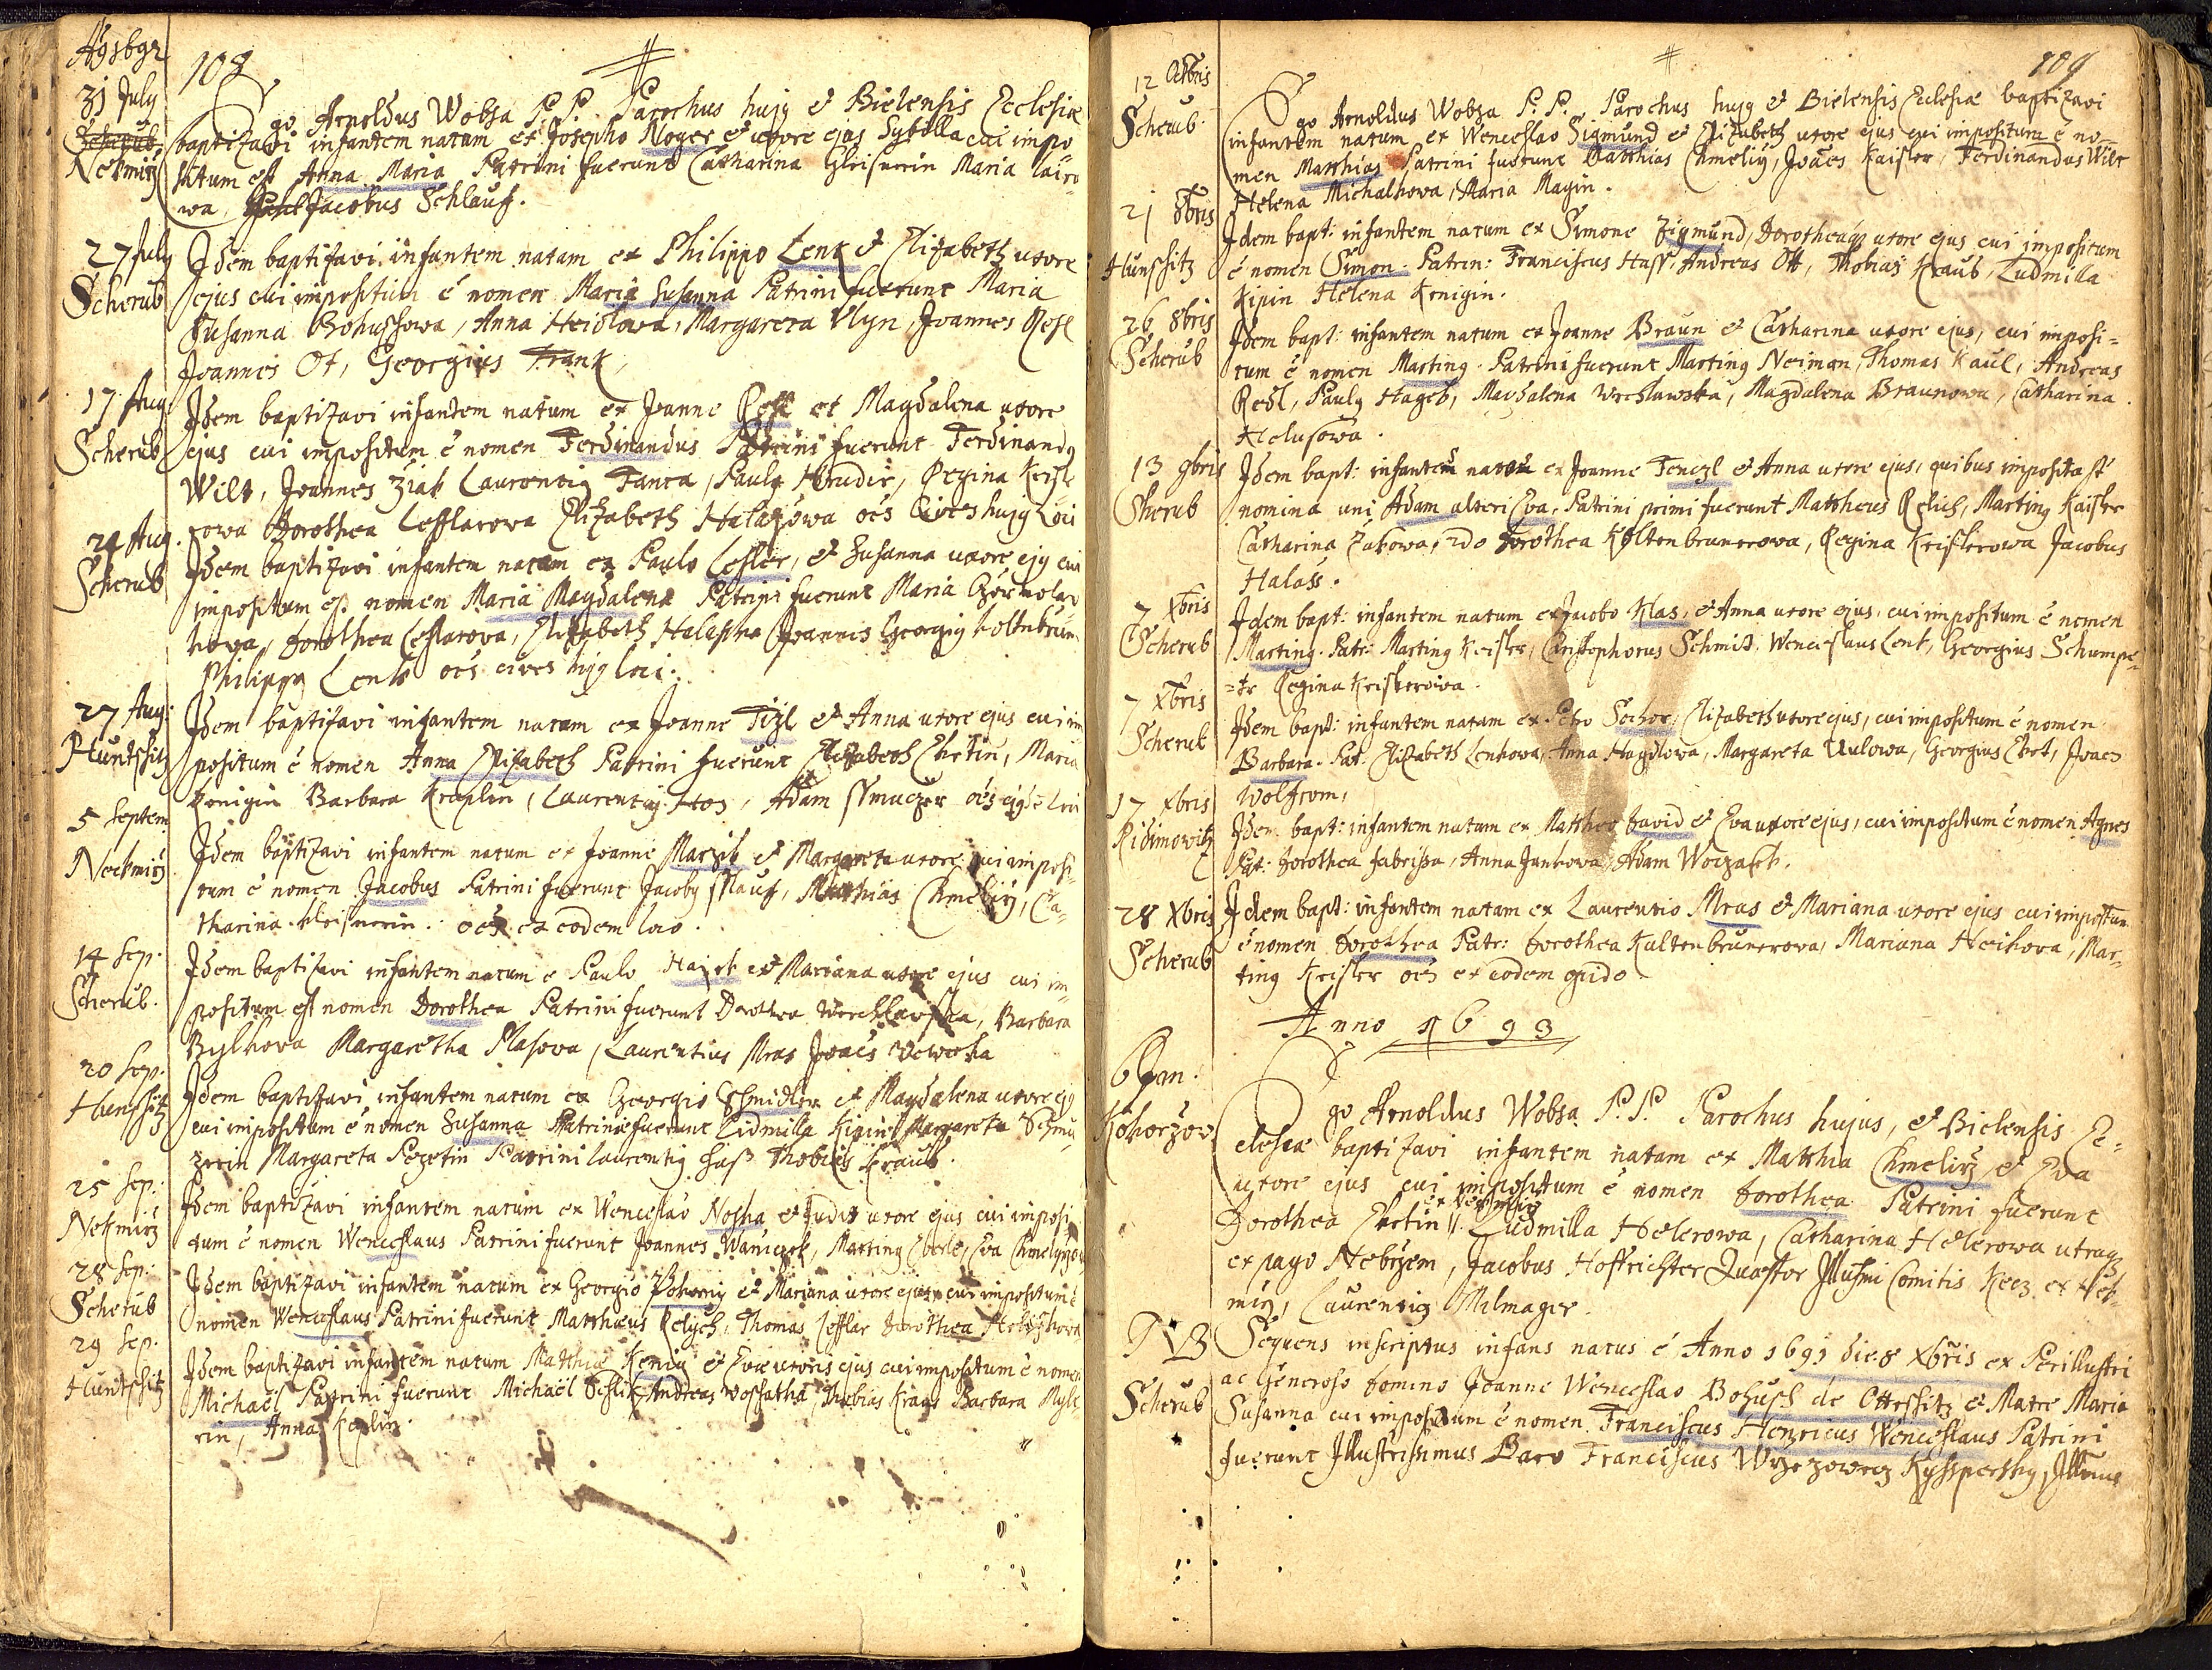 108
31 July
Nekmirz
Ego Arnoldus Wobsa P. P. Parochus hujg et Bielensis Ecclesiæ
baptizavi infantem natam ex Josepho Noger et uxore ejus Sybilla cui impo
situm est Anna Maria Patrini fuerunt Catharina Gleisnerin Maria
wa, Jacobus Schlauf.
27 July
Scherub
Idem baptizavi infantem natam ex Philippo Lenk et Elizabeth uxore
ejus cui impositum ē nomen Maria Susanna Patrini fuerunt Maria
Susanna Bohusschowa, Anna Heidlowa, Margareta Ulyn, Joannes Resl
Joannes Ot, Georgius Frank,
17 Aug:
Scherub
Idem baptizavi infantem natum ex Joanne Resl et Magdalena uxore
ejus cui impositum ē nomen Ferdinandus Patrini fuerunt Ferdinandg
Wilt, Joannes Ziak Laurentig Fanta, Paulg Hrudir, Regina Keisle
rowa Dorothea Lefflarowa Elizabeth Halasowa oēs Cives hujg Loci
24 Aug.
Scherub
Idem baptizavi infantem natam ex Paulo Lefler, et Susanna uxore ejg cui
impositum est nomen Maria Magdalena Patrini fuerunt Maria
kowa, Dorothea Leflarowa, Elizabeth Joannis Georgig Koltnbrun
Philippg Lenk oēs cives hujg loci.
27 Aug:
Huntschitz
Idem baptizavi infantem natam ex Joanne Tizl et Anna uxore ejus cui im
positum ē nomen Anna Elizabeth Patrini fuerunt Elizabeth Ehrtin, Maria
Kenigin Barbara Kraplin, Laurentig, Adam
5 Septem
Neckmirz
Idem baptizavi infantem natum ex Joanne Marzik et Margareta uxore cui imposi-
tum ē nomen Jacobus Patrini fuerunt Jacobg Slauf, Matthias Chmelirz, Ca-
tharina Kleisnerin. oēs ex eodem loco.
14 Sep.
Scherub.
Idem baptizavi infantem natam e Paulo Hajek et Mariana uxore ejus cui im-
positum est nomen Dorothea Patrini fuerunt Dorothea Barbara
Bylkova Margaretha Plasowa, Laurentius Mras Joaēs
20 Sep.
Huntschitz
Idem baptizavi infantem natam ex Georgio Schmidler et Magdalena uxore ejg
cui impositum ē nomen Susanna Patrini fuerunt Lidmilla Kipin Margareta
zrrin Margareta Pezetin Patrini Laurentig Hass Thobies Kraub.
25 Sep:
Nekmirz
Idem baptizavi infantem natum ex Wenceslao Noska et Judit uxore ejus cui imposi
tum ē nomen Wenceslaus Patrini fuerunt Joannes Waniczek, Marting Eberle, Eva
28 Sep:
Scherub
Idem baptizavi infantem natum ex Georgio Pokorny et Mariana uxore ejus cui impositum ē
nomen Wenceslaus Patrini fuerunt Matthæus Relich, Thomas Lefflar Dorothea
29 Sep.
Huntschitz
Idem baptizavi infantem natum Matthia Kenig et Eva uxoris ejus cui impositum ē nomen
Michaël Patrini fuerunt Michaël Schlik, Andreas Woschatka, Thobias Kraus Barbara
rin, Anna Keplin.
109
12 Octbris
Scherub.
Ego Arnoldus Wobsa P. P. Parochus hujg et Bielensis Ecclesiæ baptizavi
infantem natum ex Wenceslao Sigmund et Elizabeth uxore ejus cui impositum ē no-
men Matthias Patrini fuerunt Matthias Chmelirz, Joāes Kaisler, Ferdinandus Wilt
Helena Michalkowa, Maria Magin.
21 8bris
Hunschitz
Idem bapt: infantem natum ex Simone Zigmund, Dorothea uxore ejus cui impositum
ē nomen Simon. Patrin: Franciscus Hass, Andreas Ott, Thobias Kraub, Ludmilla
Kipin Helena Kenigin.
26 8bris
Scherub
Idem bapt: infantem natum ex Joanne Braun et Catharina uxore ejus, cui imposi-
tum ē nomen Marting. Patrini fuerunt Marting Neiman, Thomas Kaul, Andreas
Redl, Paulg Hagek, Magdalena Wreslawska, Magdalena Braunowa, Catharina
Klelusowa.
13 9bris
Sherub
Idem bapt: infantem natos ex Joanne Tenczl et Anna uxore ejus, quibus imposita st
nomina uni Adam alteri Eva. Patrini primi fuerunt Mattheus Relich, Marting Kaisler
Catharina Zakowa, 2do Dorothea Koltenbrunerowa, Regina Keislerowa Jacobus
Halass.
7 Xbris
Scherub
Idem bapt: infantem natum ex Jacobo Klas, et Anna uxore ejus, cui impositum ē nomen
Marting. Patr: Marting Keisler, Christophorus Schmid, Wenceslaus Lenk, Georgius Schumpe-
=tr Regina Keislerowa.
7 Xbris
Scherub
Idem bapt: infantem natam ex Petro Sochor, Elizabeth uxore ejus, cui impositum ē nomen
Barbara. Pat: Elizabeth Lenkowa, Anna Haydlowa, Margareta Uulowa, Georgius Ebrt, Joaes
Wolfrom,
17 Xbris
Ridimowitz
Idem bapt: infantem natam ex Mattheo David et Eva uxore ejus, cui impositum ē nomen Agnes
Pat: Dorothea Fabrissa, Anna Jankova, Adam Worzassk.
28 Xbris
Scherub
Idem bapt: infantem natam ex Laurentio Mras et Mariana uxore ejus cui impositum
ē nomen Dorothea Patr: Dorothea Kaltenbrunerowa, Mariana Heikova, Mar-
ting Keisler oēs ex eodem opido
Anno 1693
6 Jan.
Kokorzov
Ego Arnoldus Wobsa P. P. Parochus hujus, et Bielensis Ec-
clesiæ baptizavi infantem natam ex Matthia Chmelirz et Eva
uxore ejus cui impositum ē nomen Dorothea Patrini fuerunt
ex Nekmirz
Dorothea Ebrtin // Ludmilla Helerowa, Catharina Helerowa utraqz
ex pago Nebrzem, Jacobus Hoffrichter Quæstor Illusmi Comitis Keez ex Nek-
mirz, Laurentig Milmager.
NB
Scherub
Sequens inscriptus infans natus ē Anno 1691 die 8 Xbris ex Perillustri
ac Generoso Domino Joanne Wenceslao Bohusch de Ottoschitz et Matre Maria
Susanna cui impositum ē nomen Franciscus Henricus Wenceslaus Patrini
fuerunt Illustrissimus Baro Franciscus Kyssperský, Illmus